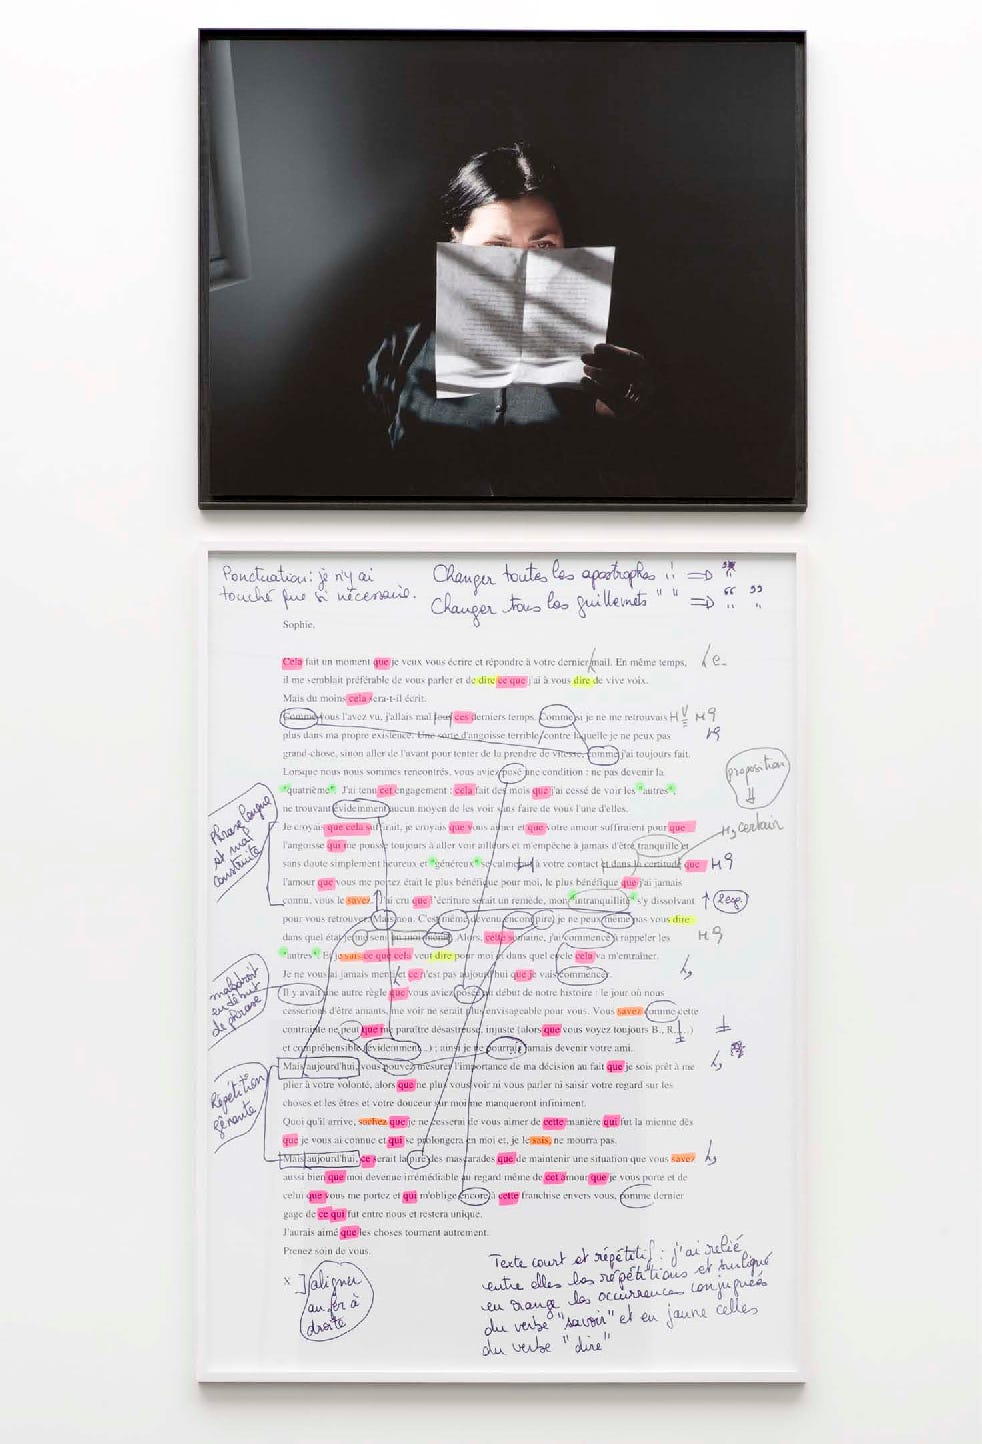 Ponctuation : je n'y ai
touché que si nécessaire.
Changer toutes les apostrophes
Changer tous les guillemets " " ⇒ “ ”
Sophie,
Cela fait un moment que je veux vous écrire et répondre à votre dernier mail. En même temps,
il me semblait préférable de vous parler et de dire ce que j'ai à vous dire de vive voix.
Mais du moins cela sera-t-il écrit.
Comme vous l'avez vu, j'allais mal tous ces derniers temps. Comme si je ne me retrouvais
plus dans ma propre existence. Une sorte d'angoisse terrible, contre laquelle je ne peux pas
grand-chose, sinon aller de l'avant pour tenter de la prendre de vitesse, comme j'ai toujours fait.
Lorsque nous nous sommes rencontrés, vous aviez posé une condition : ne pas devenir la
"quatrième". J'ai tenu cet engagement : cela fait des mois que j'ai cessé de voir les "autres",
ne trouvant évidemment aucun moyen de les voir sans faire de vous l'une d'elles.
Je croyais que cela suffirait, je croyais que vous aimer et que votre amour suffiraient pour que
l'angoisse qui me pousse toujours à aller voir ailleurs et m'empêche à jamais d'être tranquille et
sans doute simplement heureux et "généreux" se calmerait à votre contact et dans la certitude que
l'amour que vous me portez était le plus bénéfique pour moi, le plus bénéfique que j'ai jamais
connu, vous le savez. J'ai cru que l'écriture serait un remède, mon "intranquillité" s'y dissolvant
pour vous retrouver. Mais non. C'est même devenu encore pire, je ne peux même pas vous dire
dans quel état je me sens en moi-même. Alors, cette semaine, j'ai commencé à rappeler les
"autres". Et je sais ce que cela veut dire pour moi et dans quel cycle cela va m'entraîner.
Je ne vous ai jamais menti et ce n'est pas aujourd'hui que je vais commencer.
Il y avait une autre règle que vous aviez posée au début de notre histoire : le jour où nous
cesserions d'être amants, me voir ne serait plus envisageable pour vous. Vous savez comme cette
contrainte ne peut que me paraître désastreuse, injuste (alors que vous voyez toujours B., R.,...)
et compréhensible (évidemment...) ; ainsi je ne pourrais jamais devenir votre ami.
Mais aujourd'hui, vous pouvez mesurer l'importance de ma décision au fait que je sois prêt à me
plier à votre volonté, alors que ne plus vous voir ni vous parler ni saisir votre regard sur les
choses et les êtres et votre douceur sur moi me manqueront infiniment.
Quoi qu'il arrive, sachez que je ne cesserai de vous aimer de cette manière qui fut la mienne dès
que je vous ai connue et qui se prolongera en moi et, je le sais, ne mourra pas.
Mais aujourd'hui, ce serait la pire des mascarades que de maintenir une situation que vous savez
aussi bien que moi devenue irrémédiable au regard même de cet amour que je vous porte et de
celui que vous me portez et qui m'oblige encore à cette franchise envers vous, comme dernier
gage de ce qui fut entre nous et restera unique.
J'aurais aimé que les choses tournent autrement.
Prenez soin de vous.
X
aligner
au fer à
droite
proposition
certain
Phrase longue
et mal
construite
maladroit
en début
de phrase
Répétition
gênante
Texte court et répétitif : j'ai relié
entre elles les répétitions et surligné
en orange les occurrences conjuguées
du verbe "savoir" et en jaune celles
du verbe "dire"